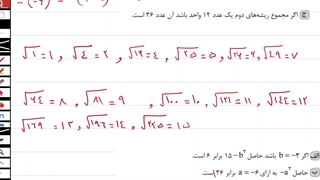 ج) اگر مجموع ریشه‌های دوم یک عدد ۱۲ واحد باشد آن عدد ۳۶ است.
√۱ = ۱ , √۴ = ۲ , √۹ = ۳ , √۲۵ = ۵ , √۳۶ = ۶ , √۴۹ = ۷
√۶۴ = ۸ , √۸۱ = ۹ , √۱۰۰ = ۱۰ , √۱۲۱ = ۱۱ , √۱۴۴ = ۱۲
√۱۶۹ = ۱۳ , √۱۹۶ = ۱۴ , √۲۲۵ = ۱۵
الف) اگر b = -۳ باشد حاصل ۱۵ - b² برابر ۶ است.
ب) حاصل -a² به ازای a = -۶ برابر ۳۶ است.